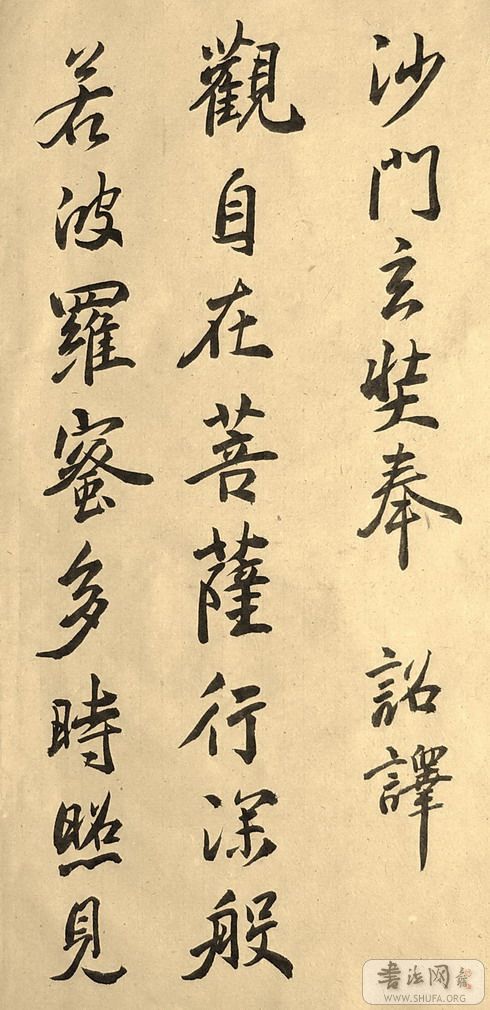 沙門玄奘奉 詔譯
觀自在菩薩行深般
若波羅蜜多時照見
书法网
WWW.SHUFA.ORG